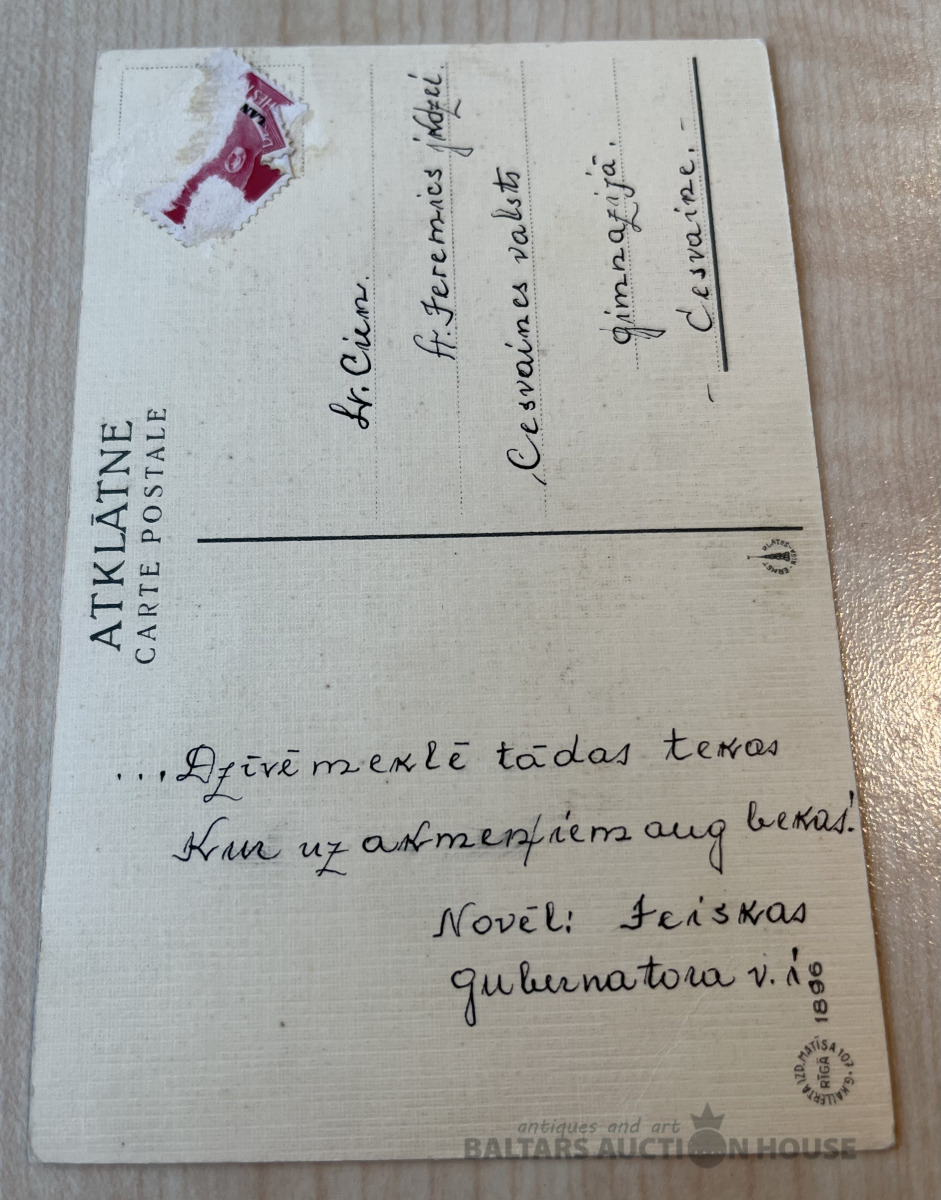 ATKLĀTNE
CARTE POSTALE
...Dzīvē meklē tādas tekas
Kur uz akmeņiem aug bekas!
Novēl: Jeiskas
gubernatora v. i.
Lv. Cien.
A. Jeremics jkdzei.
Cesvaines valsts
ģimnazijā.
Cesvaine.-
IZD. MATĪSA 107. G. KALLERTA
RĪGĀ
1896
antiques and art
BALTARS AUCTION HOUSE